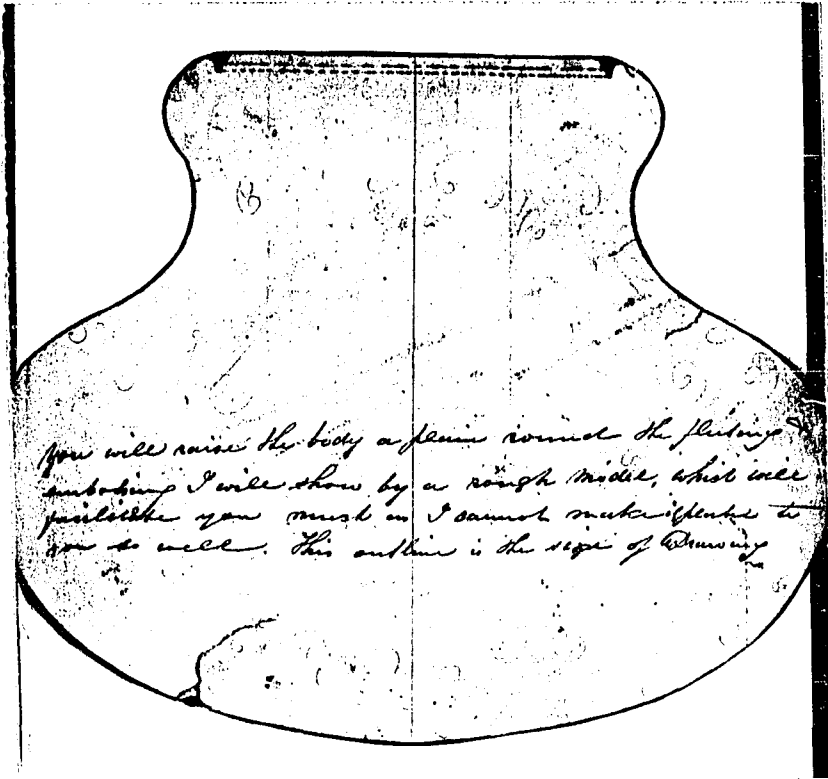 you will raise the body a plain round the fluting
embossing I will show by a rough model, which will
facilitate you much as I cannot make it plain to
you so well. This outline is the size of Drawing